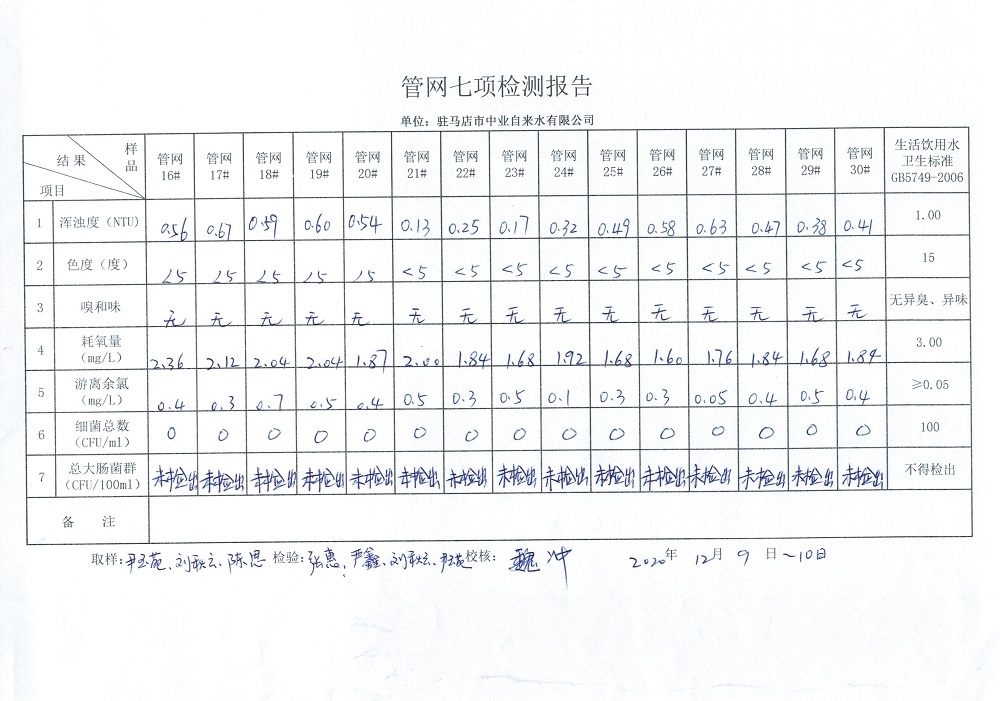 管网七项检测报告
单位：驻马店市中业自来水有限公司
结果 样品 项目 管网16# 管网17# 管网18# 管网19# 管网20# 管网21# 管网22# 管网23# 管网24# 管网25# 管网26# 管网27# 管网28# 管网29# 管网30# 生活饮用水卫生标准GB5749-2006
1 浑浊度（NTU） 0.56 0.67 0.59 0.60 0.54 0.13 0.25 0.17 0.32 0.49 0.58 0.63 0.47 0.38 0.41 1.00
2 色度（度） <5 <5 <5 <5 <5 <5 <5 <5 <5 <5 <5 <5 <5 <5 <5 15
3 嗅和味 无 无 无 无 无 无 无 无 无 无 无 无 无 无 无 无异臭、异味
4 耗氧量（mg/L） 2.36 2.12 2.04 2.04 1.87 2.00 1.84 1.68 1.92 1.68 1.60 1.76 1.84 1.68 1.84 3.00
5 游离余氯（mg/L） 0.4 0.3 0.7 0.5 0.4 0.5 0.3 0.5 0.1 0.3 0.3 0.05 0.4 0.5 0.4 ≥0.05
6 细菌总数（CFU/ml） 0 0 0 0 0 0 0 0 0 0 0 0 0 0 0 100
7 总大肠菌群（CFU/100ml） 未检出 未检出 未检出 未检出 未检出 未检出 未检出 未检出 未检出 未检出 未检出 未检出 未检出 未检出 未检出 不得检出
备 注
取样： 陈思 检验：张惠、严鑫、 校核：魏冲 2020年 12月 9日～10日